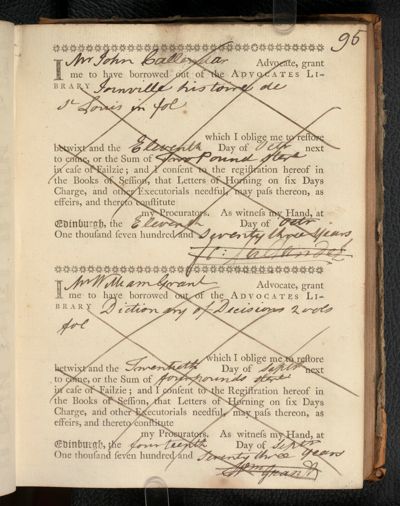 96
I Mr John Callendar Advocate, grant
me to have borrowed out of the ADVOCATES LI-
BRARY Joinville histoire de
St Louis in fol
which I oblige me to reſtore
betwixt and the Eleventh Day of Octr next
to come, or the Sum of Two Pound Sterl
in caſe of Failzie; and I conſent to the regiſtration hereof in
the Books of Seſſion, that Letters of Horning on ſix Days
Charge, and other Executorials needful, may paſs thereon, as
effeirs, and thereto conſtitute
my Procurators. As witneſs my Hand, at
Edinburgh, the Eleventh Day of Octr
One thouſand ſeven hundred and Seventy three Years
Callander
I Mr William Grant Advocate, grant
me to have borrowed out of the ADVOCATES LI-
BRARY Dictionary of Decisions 2 vols
fol
which I oblige me to reſtore
betwixt and the Twentieth Day of Septr next
to come, or the Sum of four pounds Sterl
in caſe of Failzie; and I conſent to the Regiſtration hereof in
the Books of Seſſion, that Letters of Horning on ſix Days
Charge, and other Executorials needful, may paſs thereon, as
effeirs, and thereto conſtitute
my Procurators. As witneſs my Hand, at
Edinburgh, the fourteenth Day of Septr
One thouſand ſeven hundred and Seventy three Years
Wm Grant